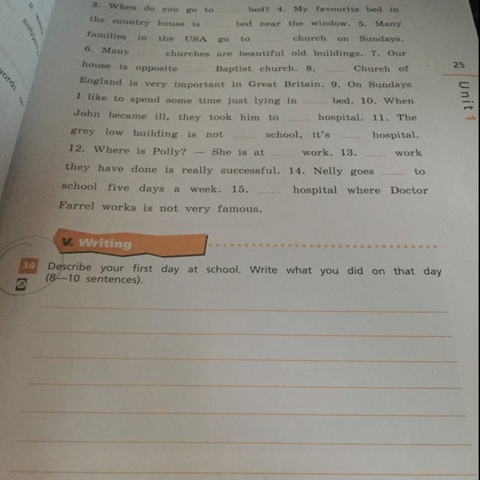 3. When do you go to ___ bed? 4. My favourite bed in
the country house is ___ bed near the window. 5. Many
families in the USA go to ___ church on Sundays.
6. Many ___ churches are beautiful old buildings. 7. Our
house is opposite ___ Baptist church. 8. ___ Church of
England is very important in Great Britain. 9. On Sundays
I like to spend some time just lying in ___ bed. 10. When
John became ill, they took him to ___ hospital. 11. The
grey low building is not ___ school, it's ___ hospital.
12. Where is Polly? — She is at ___ work. 13. ___ work
they have done is really successful. 14. Nelly goes ___ to
school five days a week. 15. ___ hospital where Doctor
Farrel works is not very famous.
25
Unit 1
V. Writing
34 Describe your first day at school. Write what you did on that day
(8—10 sentences).